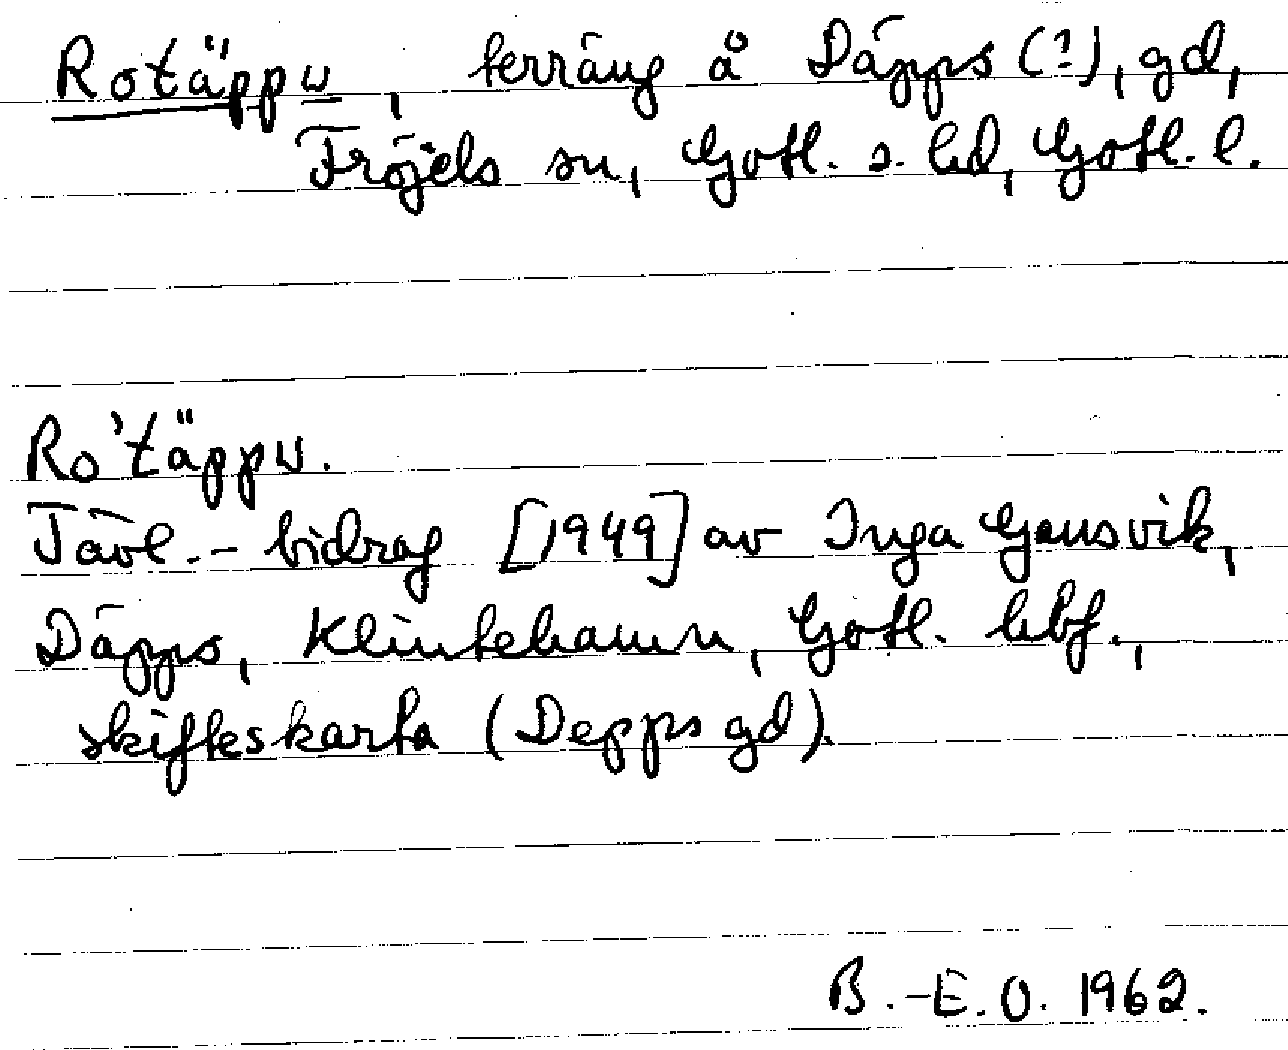 Rotäppu, terräng å Däpps (?), gd,
Fröjels sn, Gotl. s. hd, Gotl. l.
Ro'täppu.
Tävl.- bidrag [1949] av Inga Gansvik,
Däpps, Klintehamn, Gotl. hbf.,
skifteskarta (Depps gd).
B.-E.O. 1962.